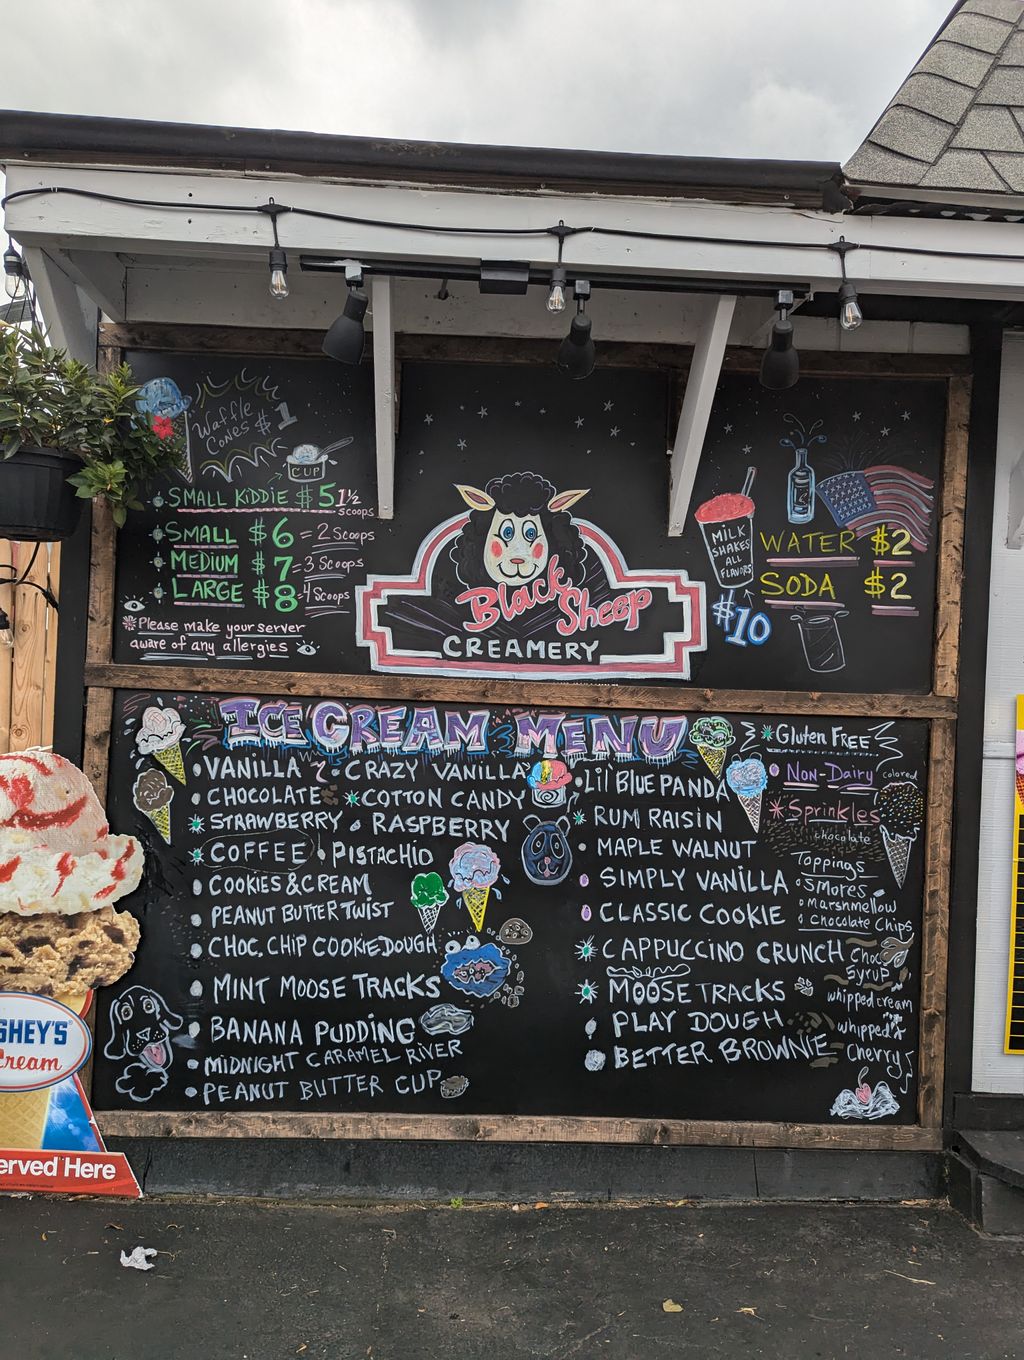 Waffle
Cones $1
CUP
SMALL KiDDiE $5 1½
Scoops
SMALL $6 = 2 Scoops
MEDIUM $7 = 3 Scoops
LARGE $8 - 4 Scoops
*Please make your server
aware of any allergies
Black
Sheep
CREAMERY
MILK
SHAKES
ALL
FLAVORS
$10
WATER $2
SODA $2
ICE CREAM MENU
VANILLA
CHOCOLATE
STRAWBERRY
COFFEE
COOKIES & CREAM
PEANUT BUTTER TWIST
CHOC. CHIP COOKIE DOUGH
MINT MOOSE TRACKS
BANANA PUDDING
MIDNIGHT CARAMEL RIVER
PEANUT BUTTER CUP
CRAZY VANILLA
COTTON CANDY
RASPBERRY
PISTACHIO
Lil' BLUE PANDA
RUM RAISIN
MAPLE WALNUT
SIMPLY VANILLA
CLASSIC COOKIE
CAPPUCCINO CRUNCH
MOOSE TRACKS
PLAY DOUGH
BETTER BROWNIE
*Gluten FREE
Non-Dairy
colored
*Sprinkles
chocolate
Toppings
S'MORES
marshmellow
Chocolate Chips
Choc
Syrup
whipped cream
whipped
Cherry
SHEY'S
Cream
erved Here